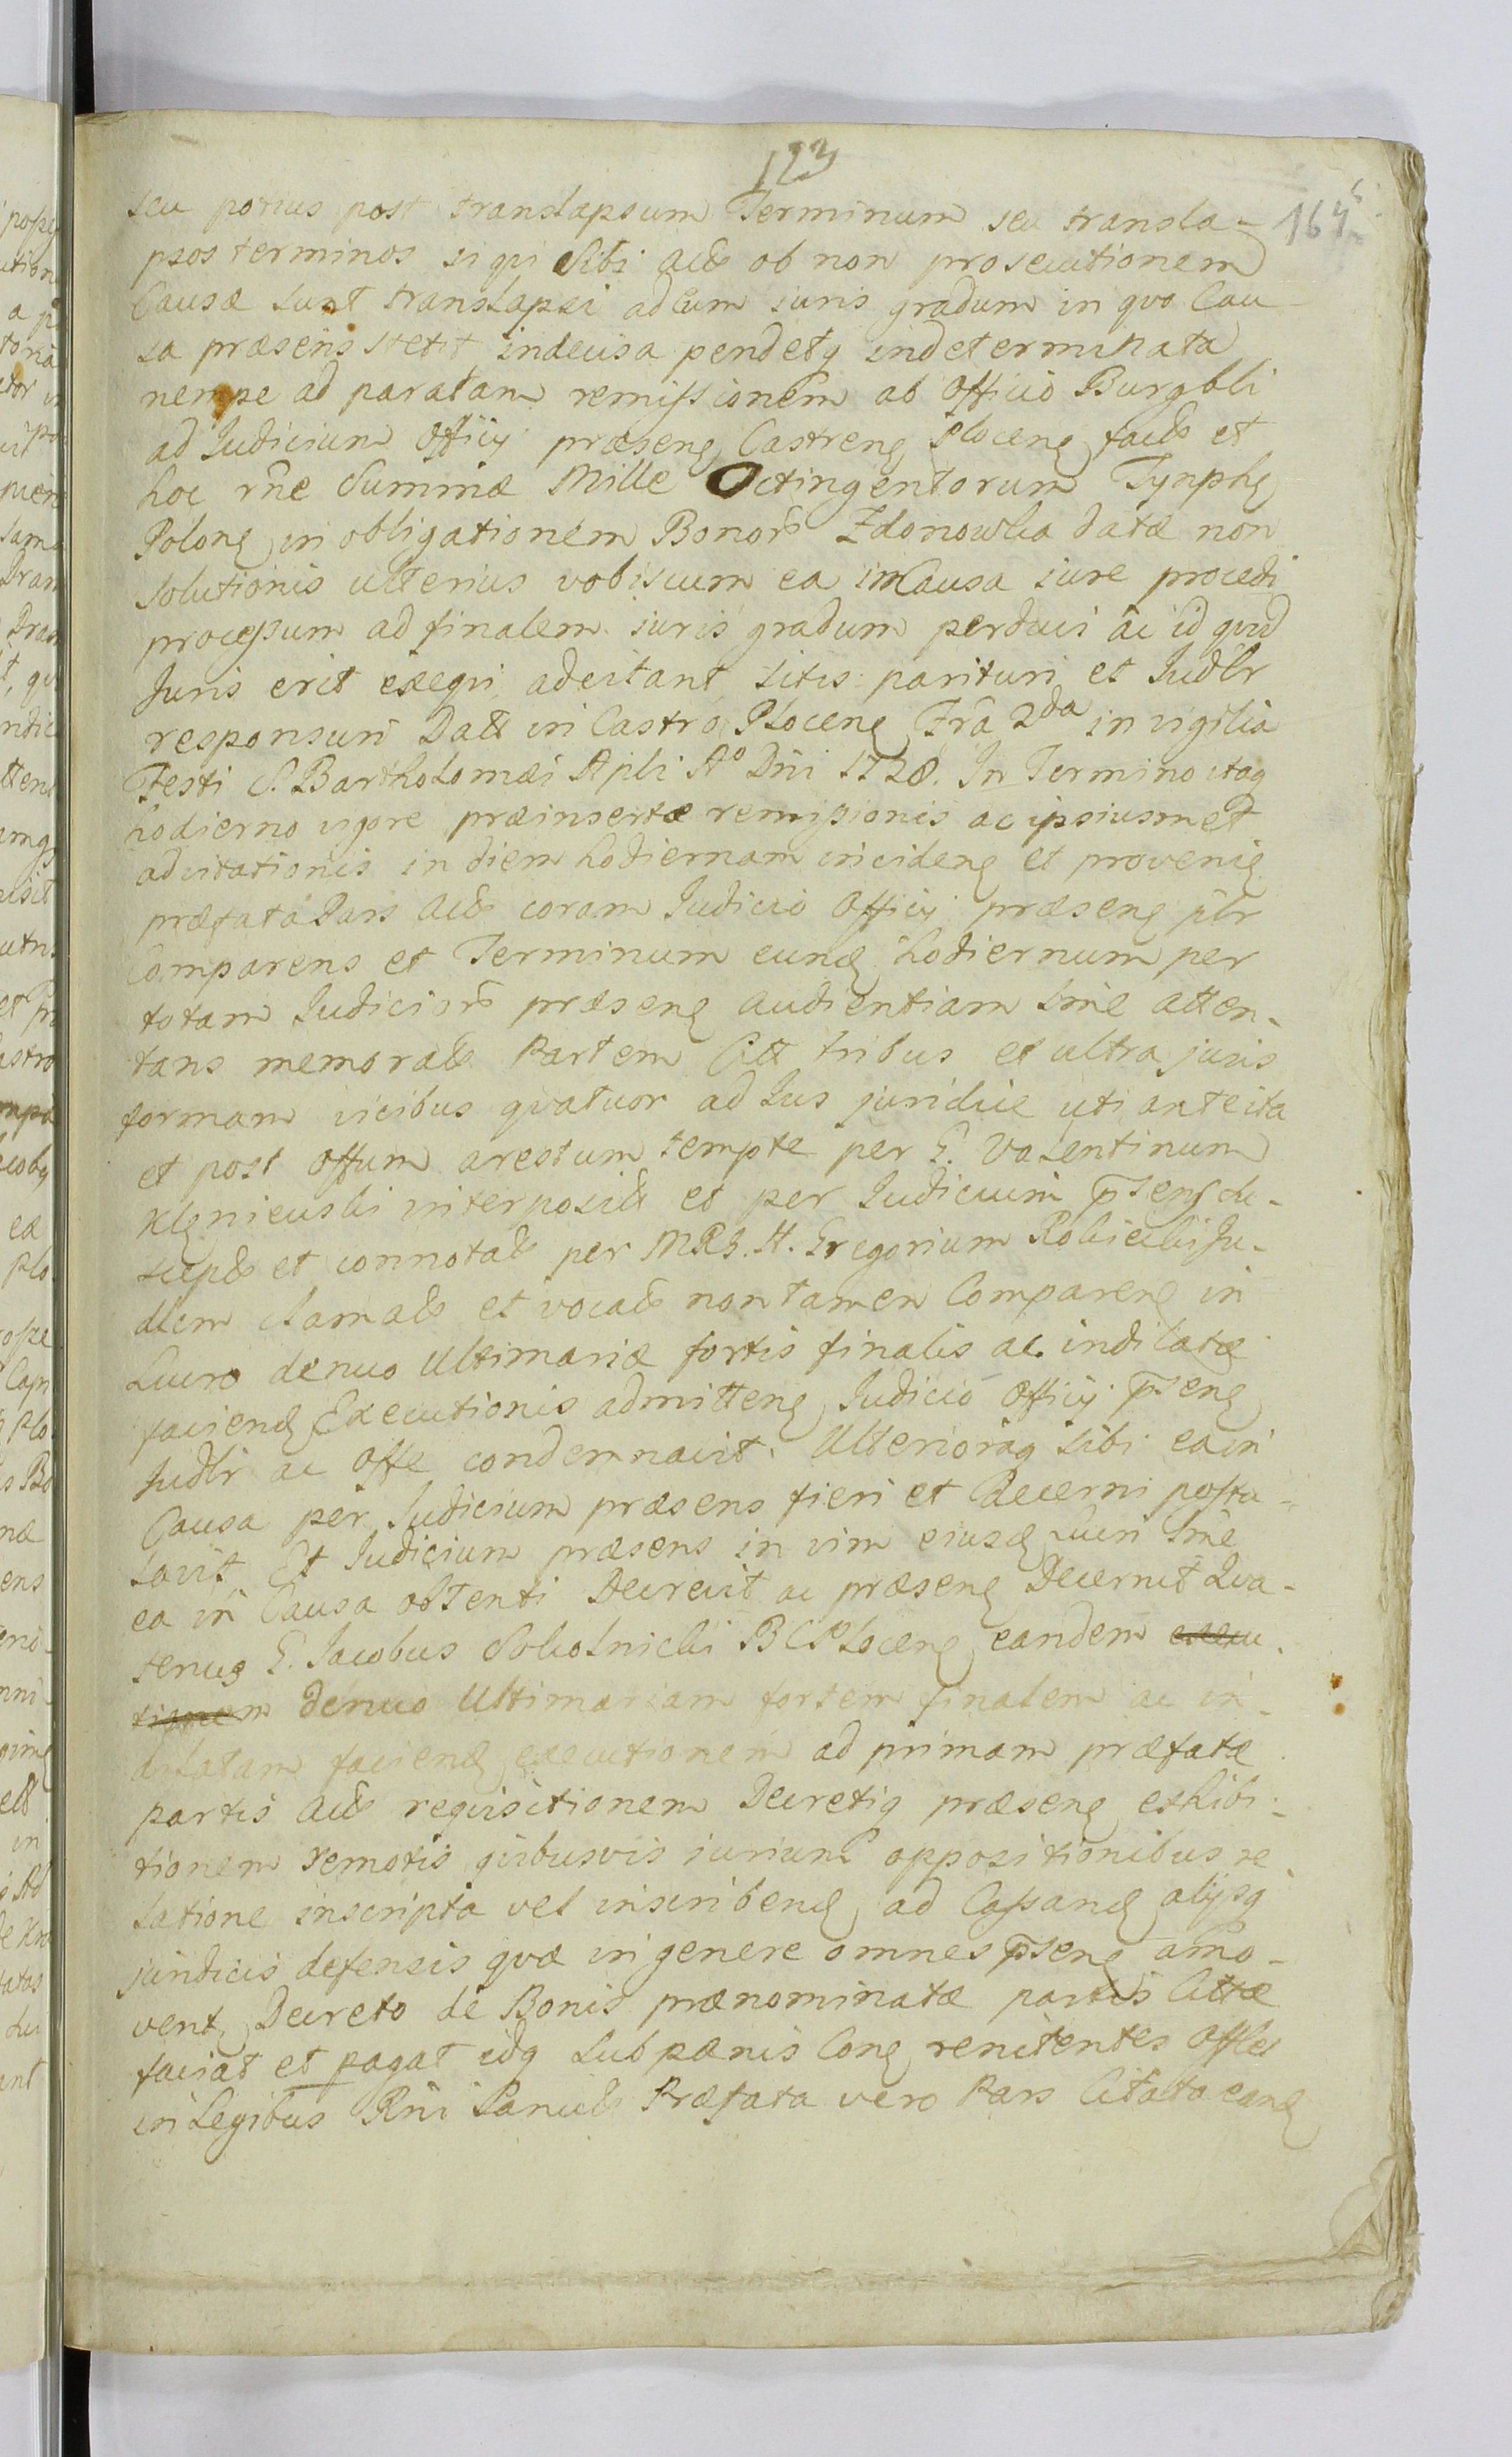 123
164
seu potius post translapsum Terminum seu transla-
psos terminos si qui Sibi Acts ob non prosecutionem
Causæ sunt translapsi ad eum iuris gradum in quo Cau-
sa præsens stetit indecisa pendetq indeterminata
nempe ad paratam remissionem ab Officio Burgbli
ad Iudicium Officij præsens Castrens Plocens facts et
hoc rñe Summæ Mille Octingentorum Tynphs
Polons in obligationem Bonors Zdonowha datæ non
solutionis ulterius vobiscum ea in Causa iure procedi
processum ad finalem iuris gradum perduci ac id quid
Juris erit exeqvi adcitant sitis parituri et Judlr
responsuri Datt in Castro Plocens Fria 2da in vigilia
Festi S. Bartholomæi Apli Ao Dni 1728. In Termino itaq
hodierno vigore præinsertæ remissionis ac ipsiusmet
adcitationis in diem hodiernam incidens et provenie
præfata Pars Acts coram Iudicio Officij præsens plr
Comparens et Terminum eund hodiernum per
totam Iudiciors præsens audientiam sine atten-
tans memorats Partem Citt tribus et ultra juris
formam vicibus qvatuor ad Ius juridice uti ante ita
et post offum arestum tempte per G. Valentinum
Klgniewski interposits et per Iudicium pñsens su-
scepts et connotats per MRS. H. Gregorium Robicki Ju-
dlem clamats et vocats non tamen Comparens in
Lucro denuo Ultimariæ fortis finalis ac indilatæ
faciend Executionis admittens Iudicio Officij pñsens
Judlr ac Offe condemnavit. Ulterioraq sibi ea in
Causa per Iudicium præsens fieri et decerni postu-
lavit Et Iudicium præsens in vim eiusd Lucri sine
ea in Causa obtenti Decrevit ac præsens Decernit Qva-
tenus G. Iacobus Sokolnicki BCPlocens eandem execu-
tionem denuo Ultimariam fortem finalem ac in-
dilatam faciend executionem ad primam præfatæ
partis Acts reqvisitionem Decretiq præsens exhibi-
tionem remotis qvibusvis iurium oppositionibus re-
latione inscripta vel inscribend ad Cassand alijsq
juridicis defensis qvæ in genere omnes pñsens amo-
vent Decreto de Bonis prænominatæ partis Cittæ
faciat et pagat idq sub pænis Cons renitentes Offles
in Legibus Rñi Sancits Præfata vero Pars Citata eand